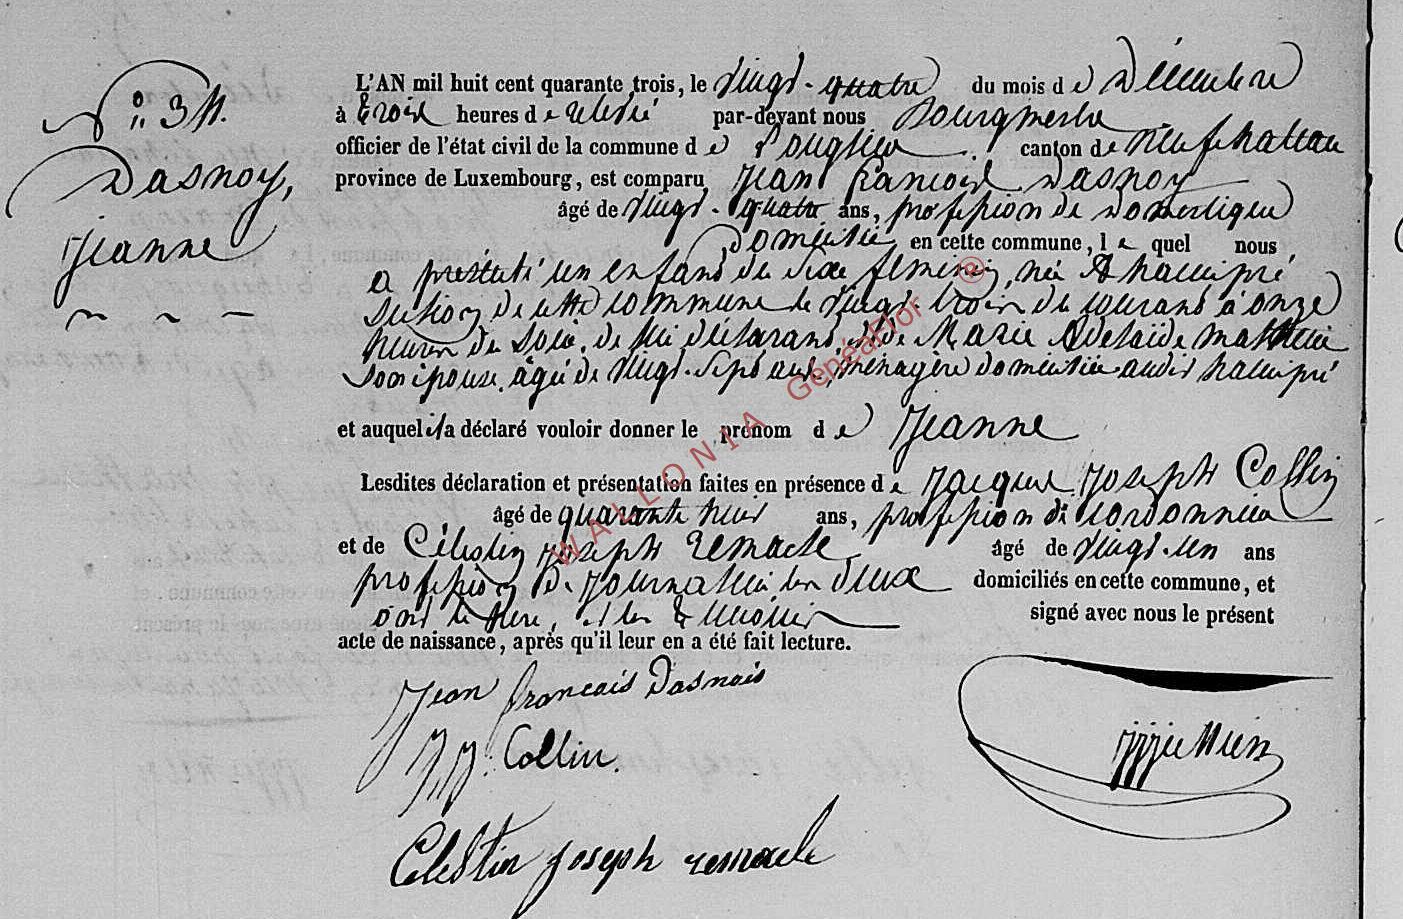 N° 34.
Dasnoy,
Jeanne
L'AN mil huit cent quarante trois, le Vingt-quatre du mois de Décembre
à trois heures de relevée par-devant nous Bourgmestre
officier de l'état civil de la commune de Longlier canton de neufchateau
province de Luxembourg, est comparu Jean francois Dasnoy
âgé de Vingt-quatre ans, profession de Domestique
Domicilié en cette commune, le quel nous
a présenté un enfant du sexe féminin, née A hamipré
section de cette commune le Vingt-trois du courant à onze
heures du soir, de lui déclarant et de Marie Adelaïde mathieu
son épouse, âgée de Vingt-Sept ans, ménagère domiciliée audit hamipré
et auquel il a déclaré vouloir donner le prénom de Jeanne
Lesdites déclaration et présentation faites en présence de Jacques Joseph Collin
âgé de quarante huit ans, profession de cordonnier
et de Célestin joseph remacle âgé de Vingt-un ans
profession de Journalier les deux domiciliés en cette commune, et
ont le Père, et les témoins signé avec nous le présent
acte de naissance, après qu'il leur en a été fait lecture.
Jean francais Dasnois
J J Collin.
Celestin joseph remacle
WALLONIA GeneaFlor ®